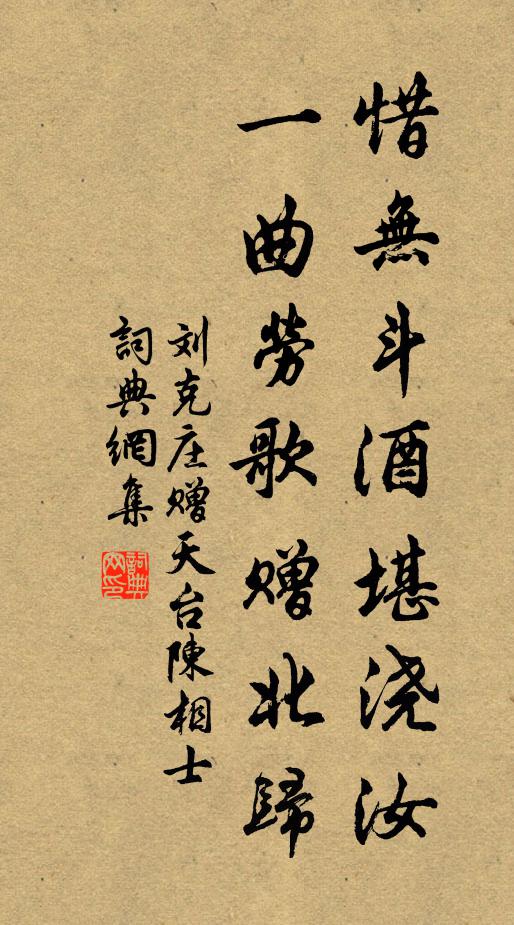 惜無斗酒堪浇汝
一曲勞歌赠北歸
刘克庄赠天台陳相士
詞典網集
詞典网印